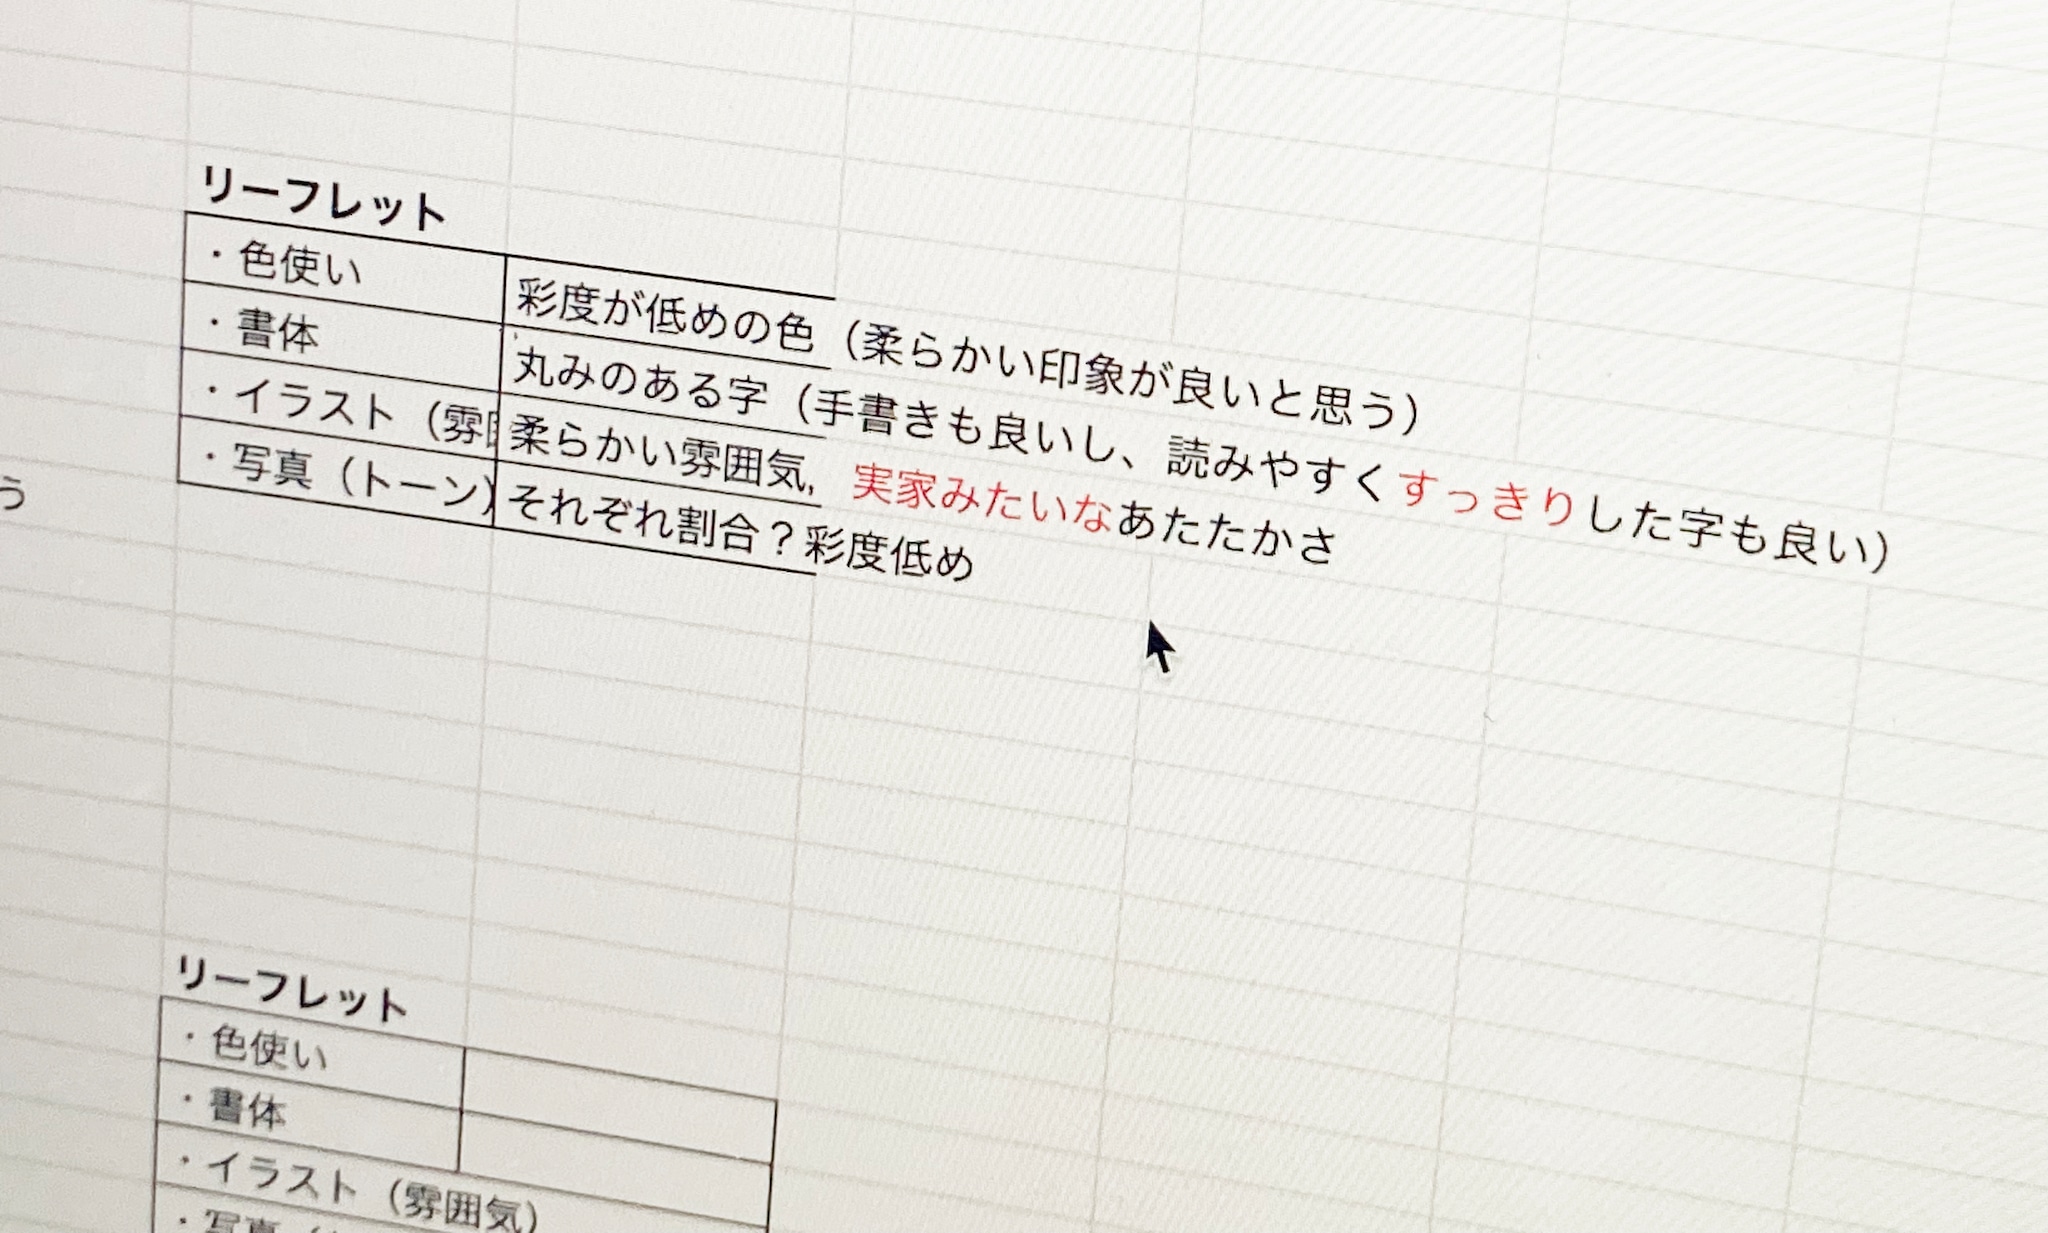 リーフレット
・色使い 彩度が低めの色（柔らかい印象が良いと思う）
・書体 丸みのある字（手書きも良いし、読みやすくすっきりした字も良い）
・イラスト（雰 柔らかい雰囲気, 実家みたいなあたたかさ
・写真（トーン） それぞれ割合？彩度低め
う
リーフレット
・色使い
・書体
・イラスト（雰囲気）
・写真（